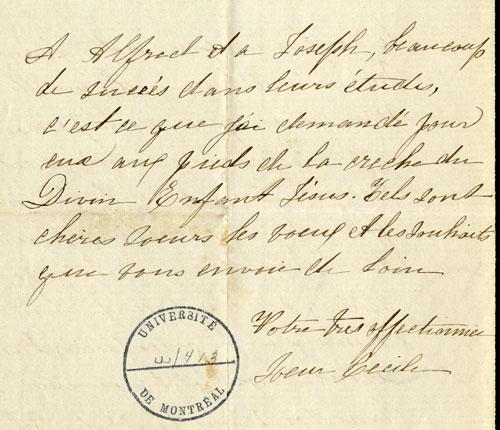 A Alfred et a Joseph, beaucoup
de succés dans leurs études,
c'est ce que j'ai demandé pour
eux aux pieds de la creche du
Divin Enfant Jésus. Tels sont
chères soeurs les voeux et les souhaits
que vous envoie de loin
Votre très affectionnée
soeur Cécile
UNIVERSITÉ
/413
DE MONTRÉAL